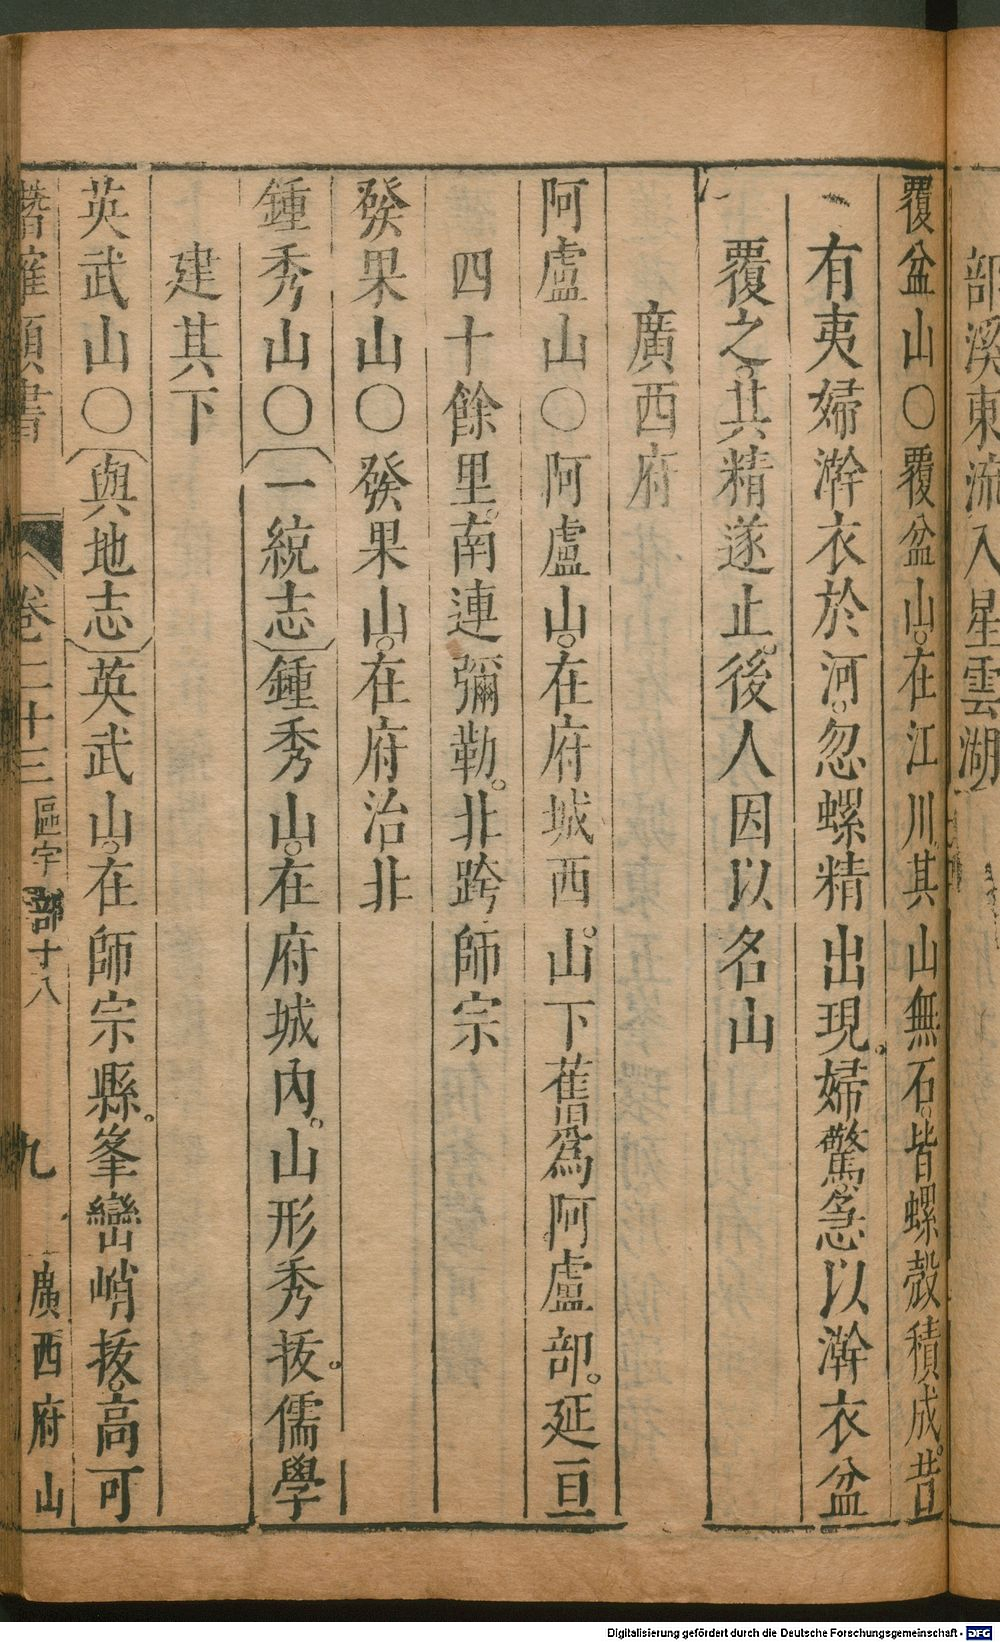 部溪東流入星雲湖
覆盆山〇覆盆山在江川其山無石皆螺殼積成昔
有夷婦澣衣於河忽螺精出現婦驚急以澣衣盆
覆之其精遂止後人因以名山
廣西府
阿盧山〇阿盧山在府城西山下舊爲阿盧部延亘
四十餘里南連彌勒北跨師宗
發果山〇發果山在府治北
鍾秀山〇〔一統志〕鍾秀山在府城內山形秀拔儒學
建其下
英武山〇〔輿地志〕英武山在師宗縣峯巒峭拔高可
潛確類書 卷二十三 區宇部十八 九 廣西府山
Digitalisierung gefördert durch die Deutsche Forschungsgemeinschaft - DFG